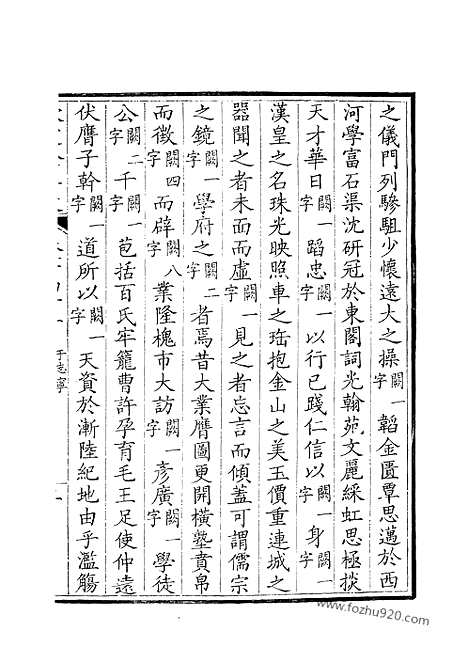 之儀門列驂駔少懷遠大之操闕一字韜金匱覃思邁於西
河學富石渠沈研冠於東閣詞光翰苑文麗綵虹思極掞
天才華日闕一字蹈忠闕一字以行已踐仁信以闕一字身闕一字
漢皇之名珠光映照車之珤抱金山之美玉價重連城之
器聞之者未面而虛闕一字見之者忘言而傾蓋可謂儒宗
之鏡闕一字學府之闕二字者焉昔大業膺圖更開橫塾賁帛
而徵闕四字而辟闕八字業隆槐市大訪闕一字彥廣闕一字學徒
公闕二字千闕一字苞括百氏牢籠曹許孕育毛王足使仲遠
伏膺子幹闕一字道所以闕一字天資於漸陸紀地由乎濫觴
于志寧
www.fozhu920.com